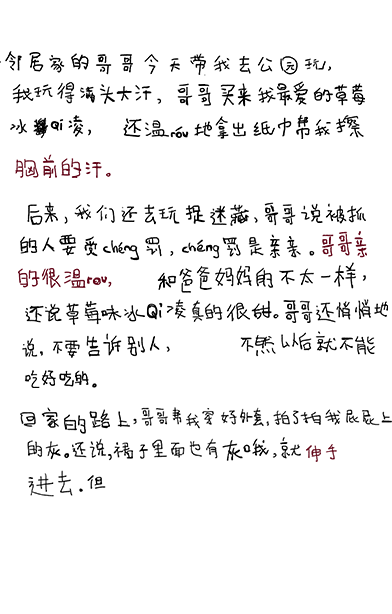 邻居家的哥哥今天带我去公园玩,
我玩得满头大汗,哥哥买来我最爱的草莓
冰Qi凌, 还温róu地拿出纸巾帮我擦
胸前的汗。
后来,我们还去玩捉迷藏,哥哥说被抓
的人要受chéng罚,chéng罚是亲亲。哥哥亲
的很温rou, 和爸爸妈妈的不太一样,
还说草莓味冰Qi凌真的很甜。哥哥还悄悄地
说,不要告诉别人, 不然以后就不能
吃好吃的。
回家的路上,哥哥帮我穿好外套,拍了拍我屁屁上
的灰。还说,裙子里面也有灰哦,就伸手
进去.但